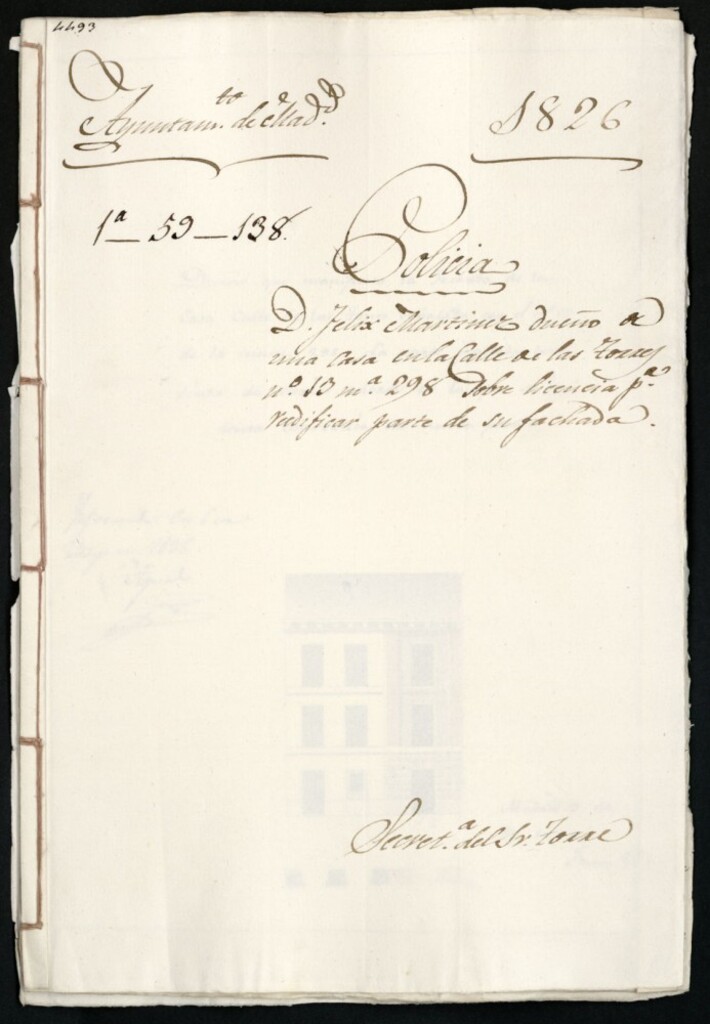 4493
Ayuntam.to de Mad.d
1826
1ª — 59 — 138.
Policia
D. Felix Martinez dueño de
una casa en la Calle de las Torres
nº. 13 mª. 298 sobre licencia pª.
redificar parte de su fachada.
Secret.ª del Sr. Torre